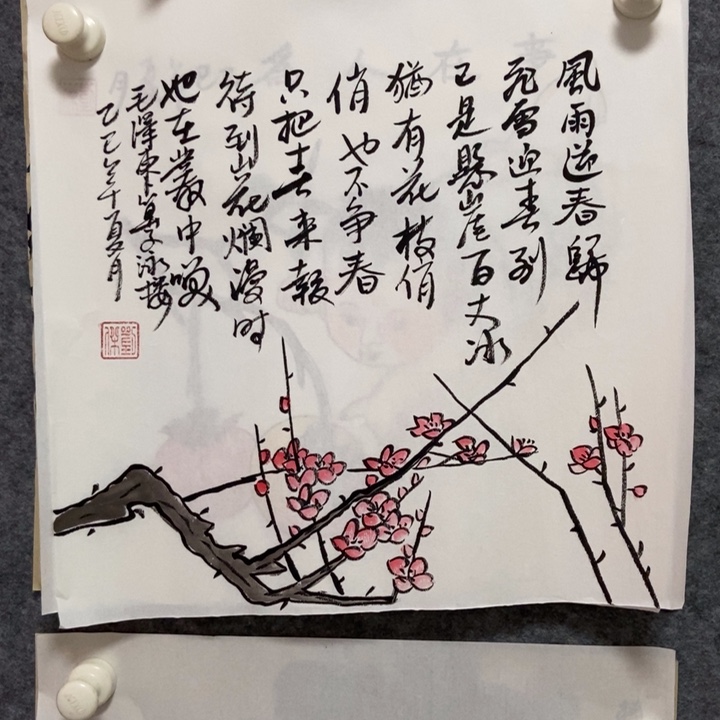 風雨送春歸
飛雪迎春到
已是懸崖百丈冰
猶有花枝俏
俏也不争春
只把春来報
待到山花爛漫时
她在叢中咲
毛澤東卜算子咏梅
乙巳年夏月